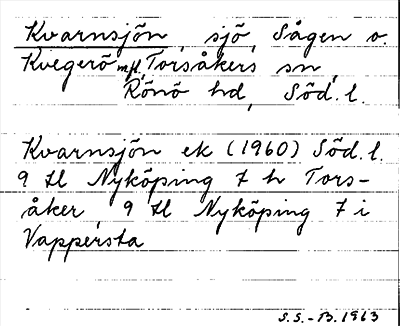 Kvarnsjön, sjö, Sågen o.
Kvegerö mfl, Torsåkers sn,
Rönö hd, Söd. l.
Kvarnsjön ek (1960) Söd. l.
9 H Nyköping 7 h Tors-
åker, 9 H Nyköping 7 i
Vappersta
S.S.-B. 1963